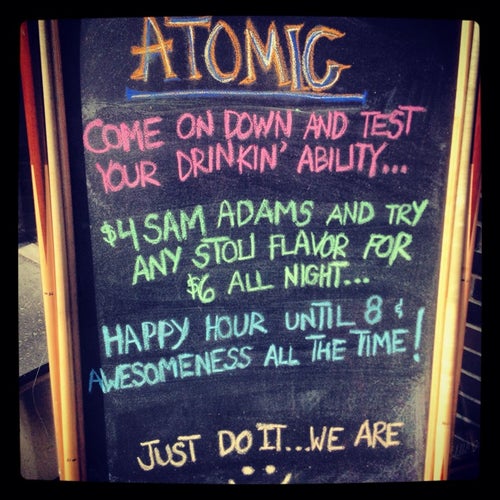 ATOMIC
COME ON DOWN AND TEST
YOUR DRINKIN' ABILITY...
$4 SAM ADAMS AND TRY
ANY STOLI FLAVOR FOR
$6 ALL NIGHT...
HAPPY HOUR UNTIL 8 &
AWESOMENESS ALL THE TIME!
JUST DO IT...WE ARE